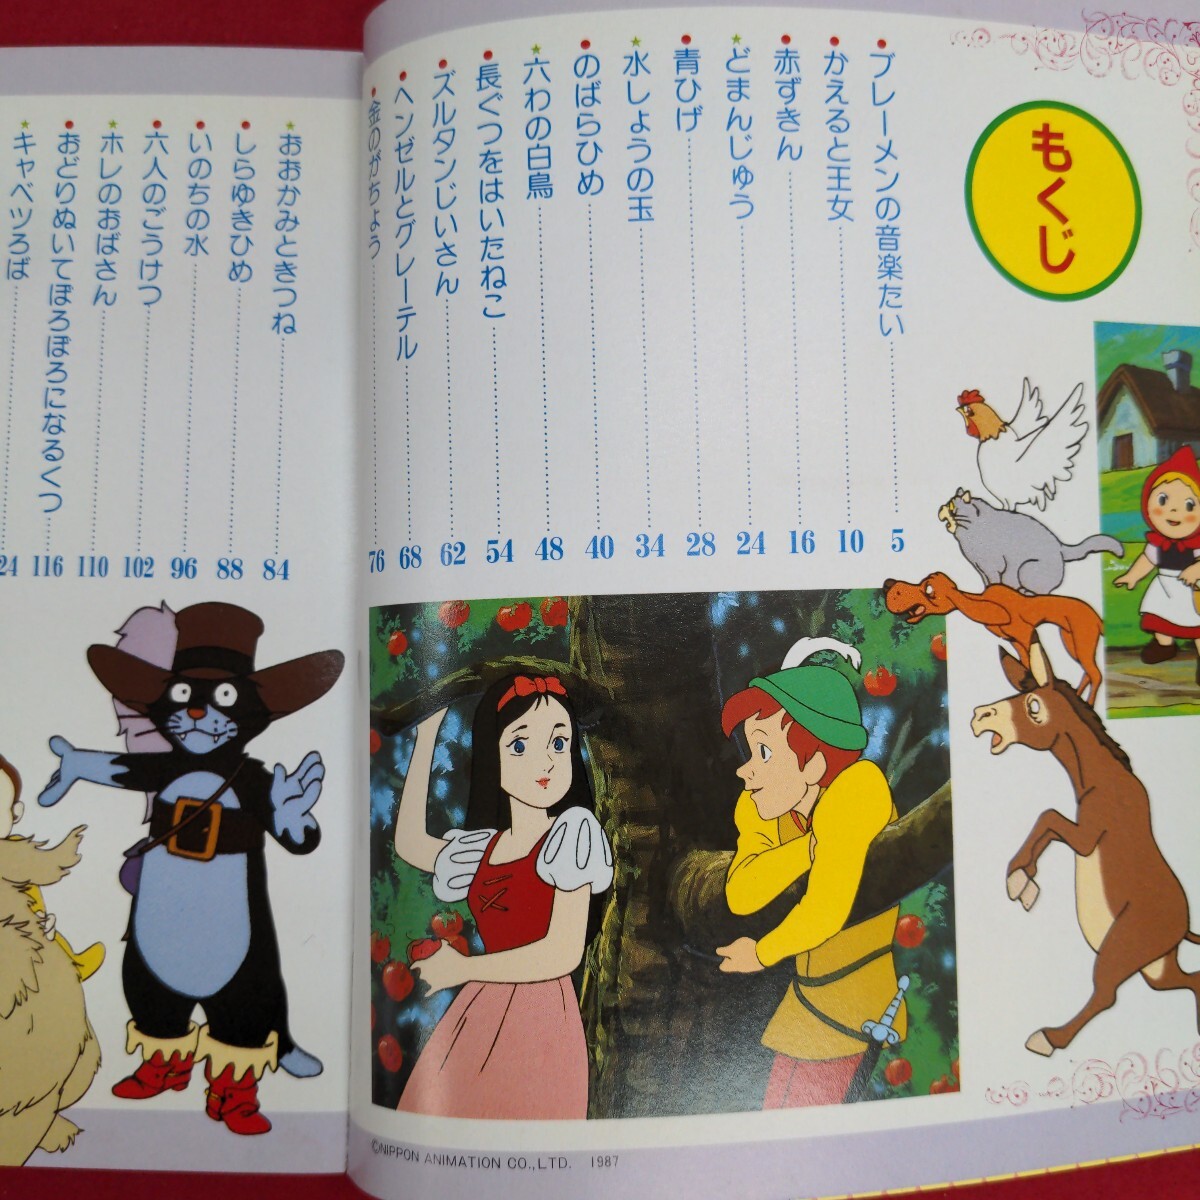 もくじ
ブレーメンの音楽たい 5
かえると王女 10
赤ずきん 16
どまんじゅう 24
青ひげ 28
水しょうの玉 34
のばらひめ 40
六わの白鳥 48
長ぐつをはいたねこ 54
ズルタンじいさん 62
ヘンゼルとグレーテル 68
金のがちょう 76
おおかみときつね 84
しらゆきひめ 88
いのちの水 96
六人のごうけつ 102
ホレのおばさん 110
おどりぬいてぼろぼろになるくつ 116
キャベツろば 24
©NIPPON ANIMATION CO., LTD. 1987